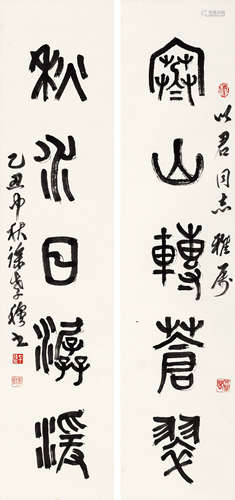 以君同志雅屬
寒山轉蒼翠
秋水日潺湲
乙丑中秋徐孝穆書